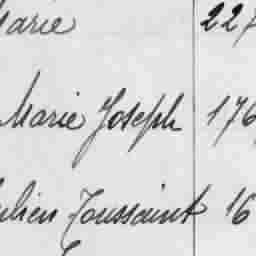 Marie 227
Marie Joseph 176
Julien Toussaint 16